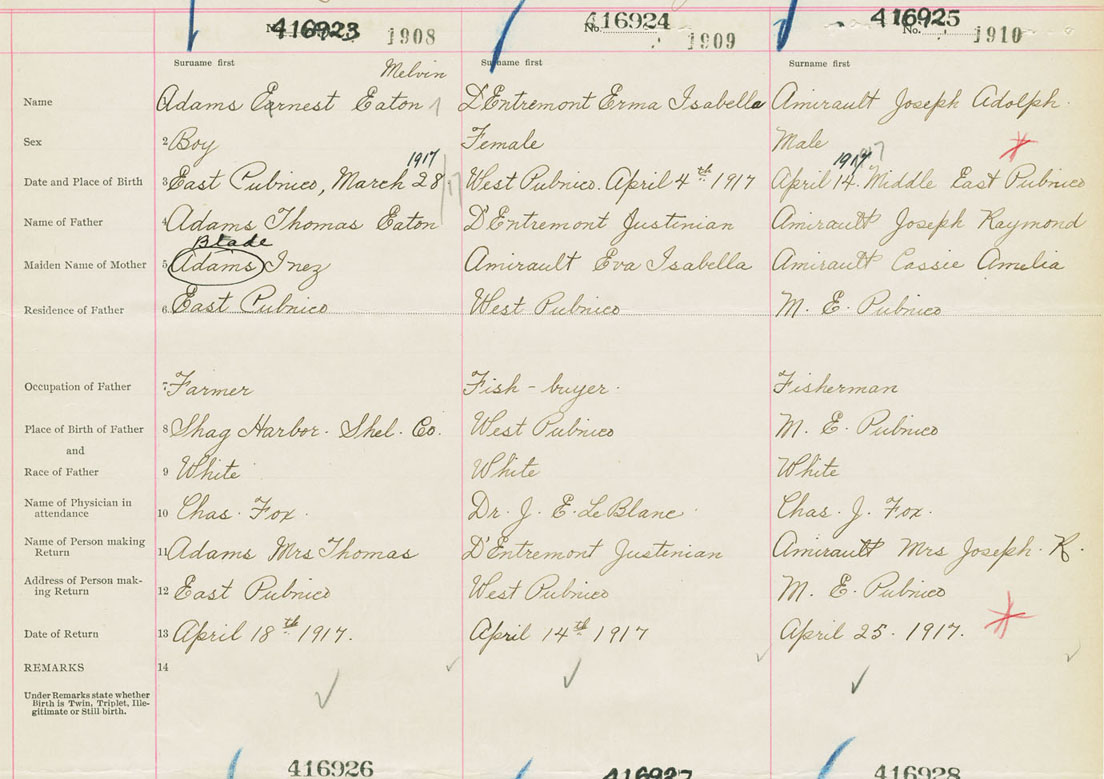 416923 1908 No. 416924 1909 No. 416925 1910
Surname first Surname first Surname first
Melvin
Name Adams Ernest Eaton D'Entremont Erma Isabella Amirault Joseph Adolph.
Sex 2 Boy Female Male
1917 1917
Date and Place of Birth 3 East Pubnico, March 28 West Pubnico. April 4th 1917 April 14. Middle East Pubnico
Name of Father 4 Adams Thomas Eaton D'Entremont Justinian Amirault Joseph Raymond
Blade
Maiden Name of Mother 5 Adams Inez Amirault Eva Isabella Amirault Cassie Amelia
Residence of Father 6 East Pubnico West Pubnico M. E. Pubnico
Occupation of Father 7 Farmer Fish - buyer. Fisherman
Place of Birth of Father 8 Shag Harbor. Shel. Co. West Pubnico M. E. Pubnico
and
Race of Father 9 White White White
Name of Physician in
attendance 10 Chas. Fox. Dr. J. E. LeBlanc Chas. J. Fox.
Name of Person making
Return 11 Adams Mrs Thomas D'Entremont Justinian Amirault Mrs Joseph. R.
Address of Person mak-
ing Return 12 East Pubnico West Pubnico M. E. Pubnico
Date of Return 13 April 18th 1917. April 14th 1917 April 25. 1917.
REMARKS 14
Under Remarks state whether
Birth is Twin, Triplet, Ille-
gitimate or Still birth.
416926 416927 416928